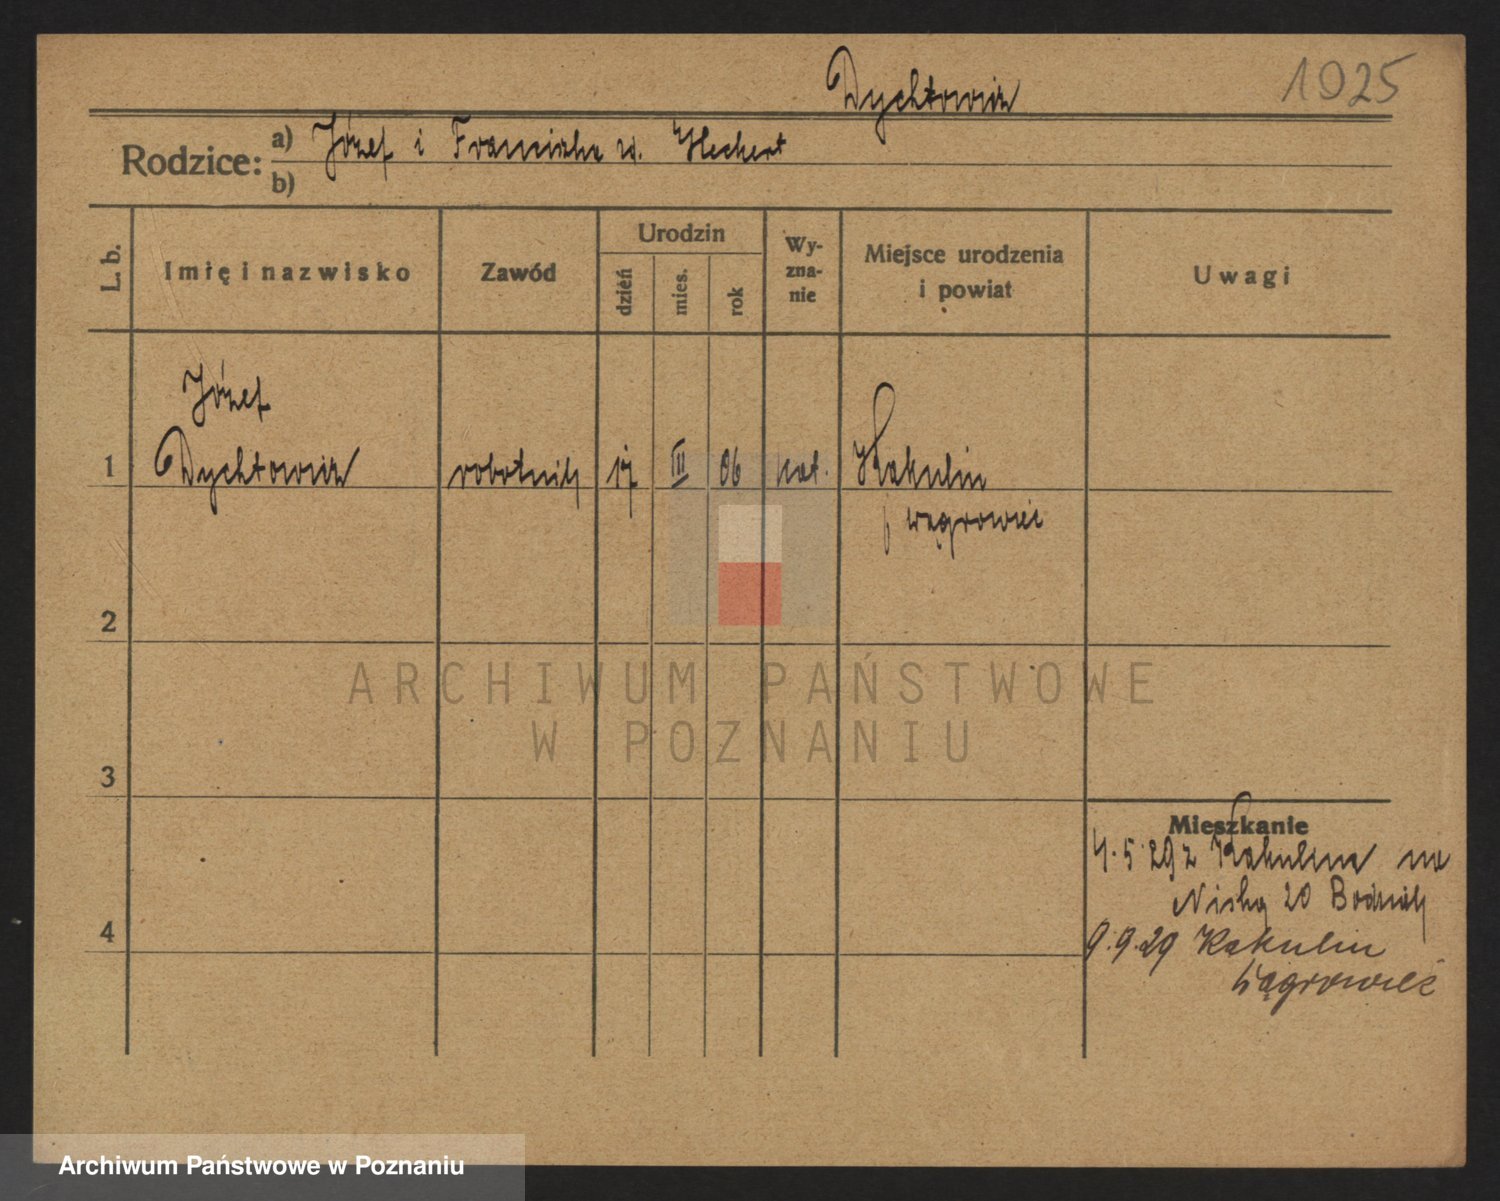 Dychtowicz 1925
Rodzice: a) Józef i Franciszka
b)
L. b. Imię i nazwisko Zawód Urodzin dzień mies. rok Wyznanie Miejsce urodzenia i powiat Uwagi
Józef
1 Dychtowicz robotnik 17 III 06 kat. Kakulin
p wągrowiec
2
ARCHIWUM PAŃSTWOWE
W POZNANIU
3
Mieszkanie
4.5 29 z Kakulina na
20
4 9.9.29 Kakulin
Wągrowiec
Archiwum Państwowe w Poznaniu